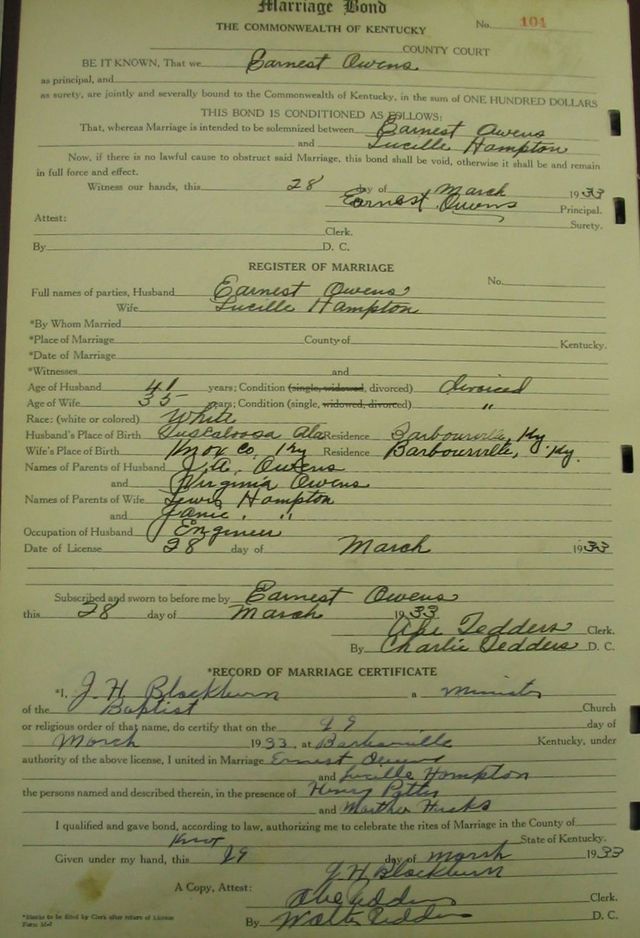 Marriage Bond
THE COMMONWEALTH OF KENTUCKY No. 101
COUNTY COURT
BE IT KNOWN, That we Earnest Owens
as principal, and
as surety, are jointly and severally bound to the Commonwealth of Kentucky, in the sum of ONE HUNDRED DOLLARS
THIS BOND IS CONDITIONED AS FOLLOWS:
That, whereas Marriage is intended to be solemnized between Earnest Owens
and Lucille Hampton
Now, if there is no lawful cause to obstruct said Marriage, this bond shall be void, otherwise it shall be and remain
in full force and effect.
Witness our hands, this 28 day of March 1933
Earnest Owens Principal.
Attest: Surety.
Clerk.
By D. C.
REGISTER OF MARRIAGE
Full names of parties, Husband Earnest Owens No.
Wife Lucille Hampton
*By Whom Married
*Place of Marriage County of Kentucky.
*Date of Marriage
*Witnesses and
Age of Husband 41 years; Condition (single, widowed, divorced) divorced
Age of Wife 35 years; Condition (single, widowed, divorced) "
Race: (white or colored) White
Husband's Place of Birth Tuscaloosa Ala Residence Barbourville, Ky.
Wife's Place of Birth Knox Co. Ky Residence Barbourville, Ky.
Names of Parents of Husband J.A. Owens
and Virginia Owens
Names of Parents of Wife Lewis Hampton
and Janie "
Occupation of Husband Engineer
Date of License 28 day of March 1933
Subscribed and sworn to before me by Earnest Owens
this 28 day of March 1933.
Abe Tedders Clerk.
By Charlie Tedders D. C.
*RECORD OF MARRIAGE CERTIFICATE
*I, J. H. Blackburn a Minister
of the Baptist Church
or religious order of that name, do certify that on the 29 day of
March 1933, at Barbourville Kentucky, under
authority of the above license, I united in Marriage Ernest Owens
and Lucille Hampton
the persons named and described therein, in the presence of Henry
and Martha Hicks
I qualified and gave bond, according to law, authorizing me to celebrate the rites of Marriage in the County of
Knox State of Kentucky.
Given under my hand, this 29 day of March 1933
J H Blackburn
A Copy, Attest: Abe Tedders Clerk.
By Walter Tedders D. C.
*Blanks to be filled by Clerk after return of License